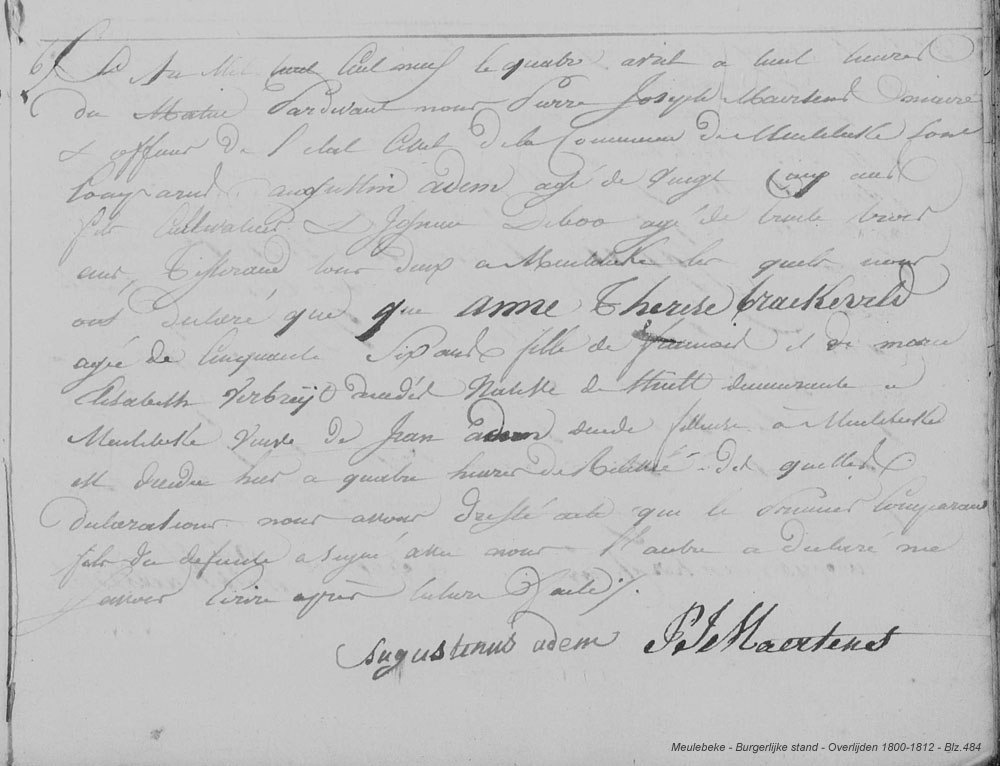 L'An Mil huit Cent neuf le quatre avril a huit heures
du Matin Pardevant nous Pierre Joseph Maertens maire
& officier de l'etat Civil de la Commune de Meulebeke sont
Comparus augustin adem agé de vingt Cinq ans
fils Cultivateur & Deboo agé de trente trois
ans, Tisserand tous deux a Meulebeke les quels nous
ont declaré que que anne Therese Craekeveld
agée de Cinquante Six ans fille de francois et de marie
Elisabeth Verbrugt Native de thielt demeurante a
Meulebeke Veuve de Jean adem fileuse à Meulebeke
est decedée hier a quatre heures de Relevé Des quelles
declarations nous avons dressé acte que le Premier Comparant
fils du defunte a signé avec nous l'autre a declaré ne
savoir Ecrire après lecture d'acte
augustinus adem PJMaertens
Meulebeke - Burgerlijke stand - Overlijden 1800-1812 - Blz.484